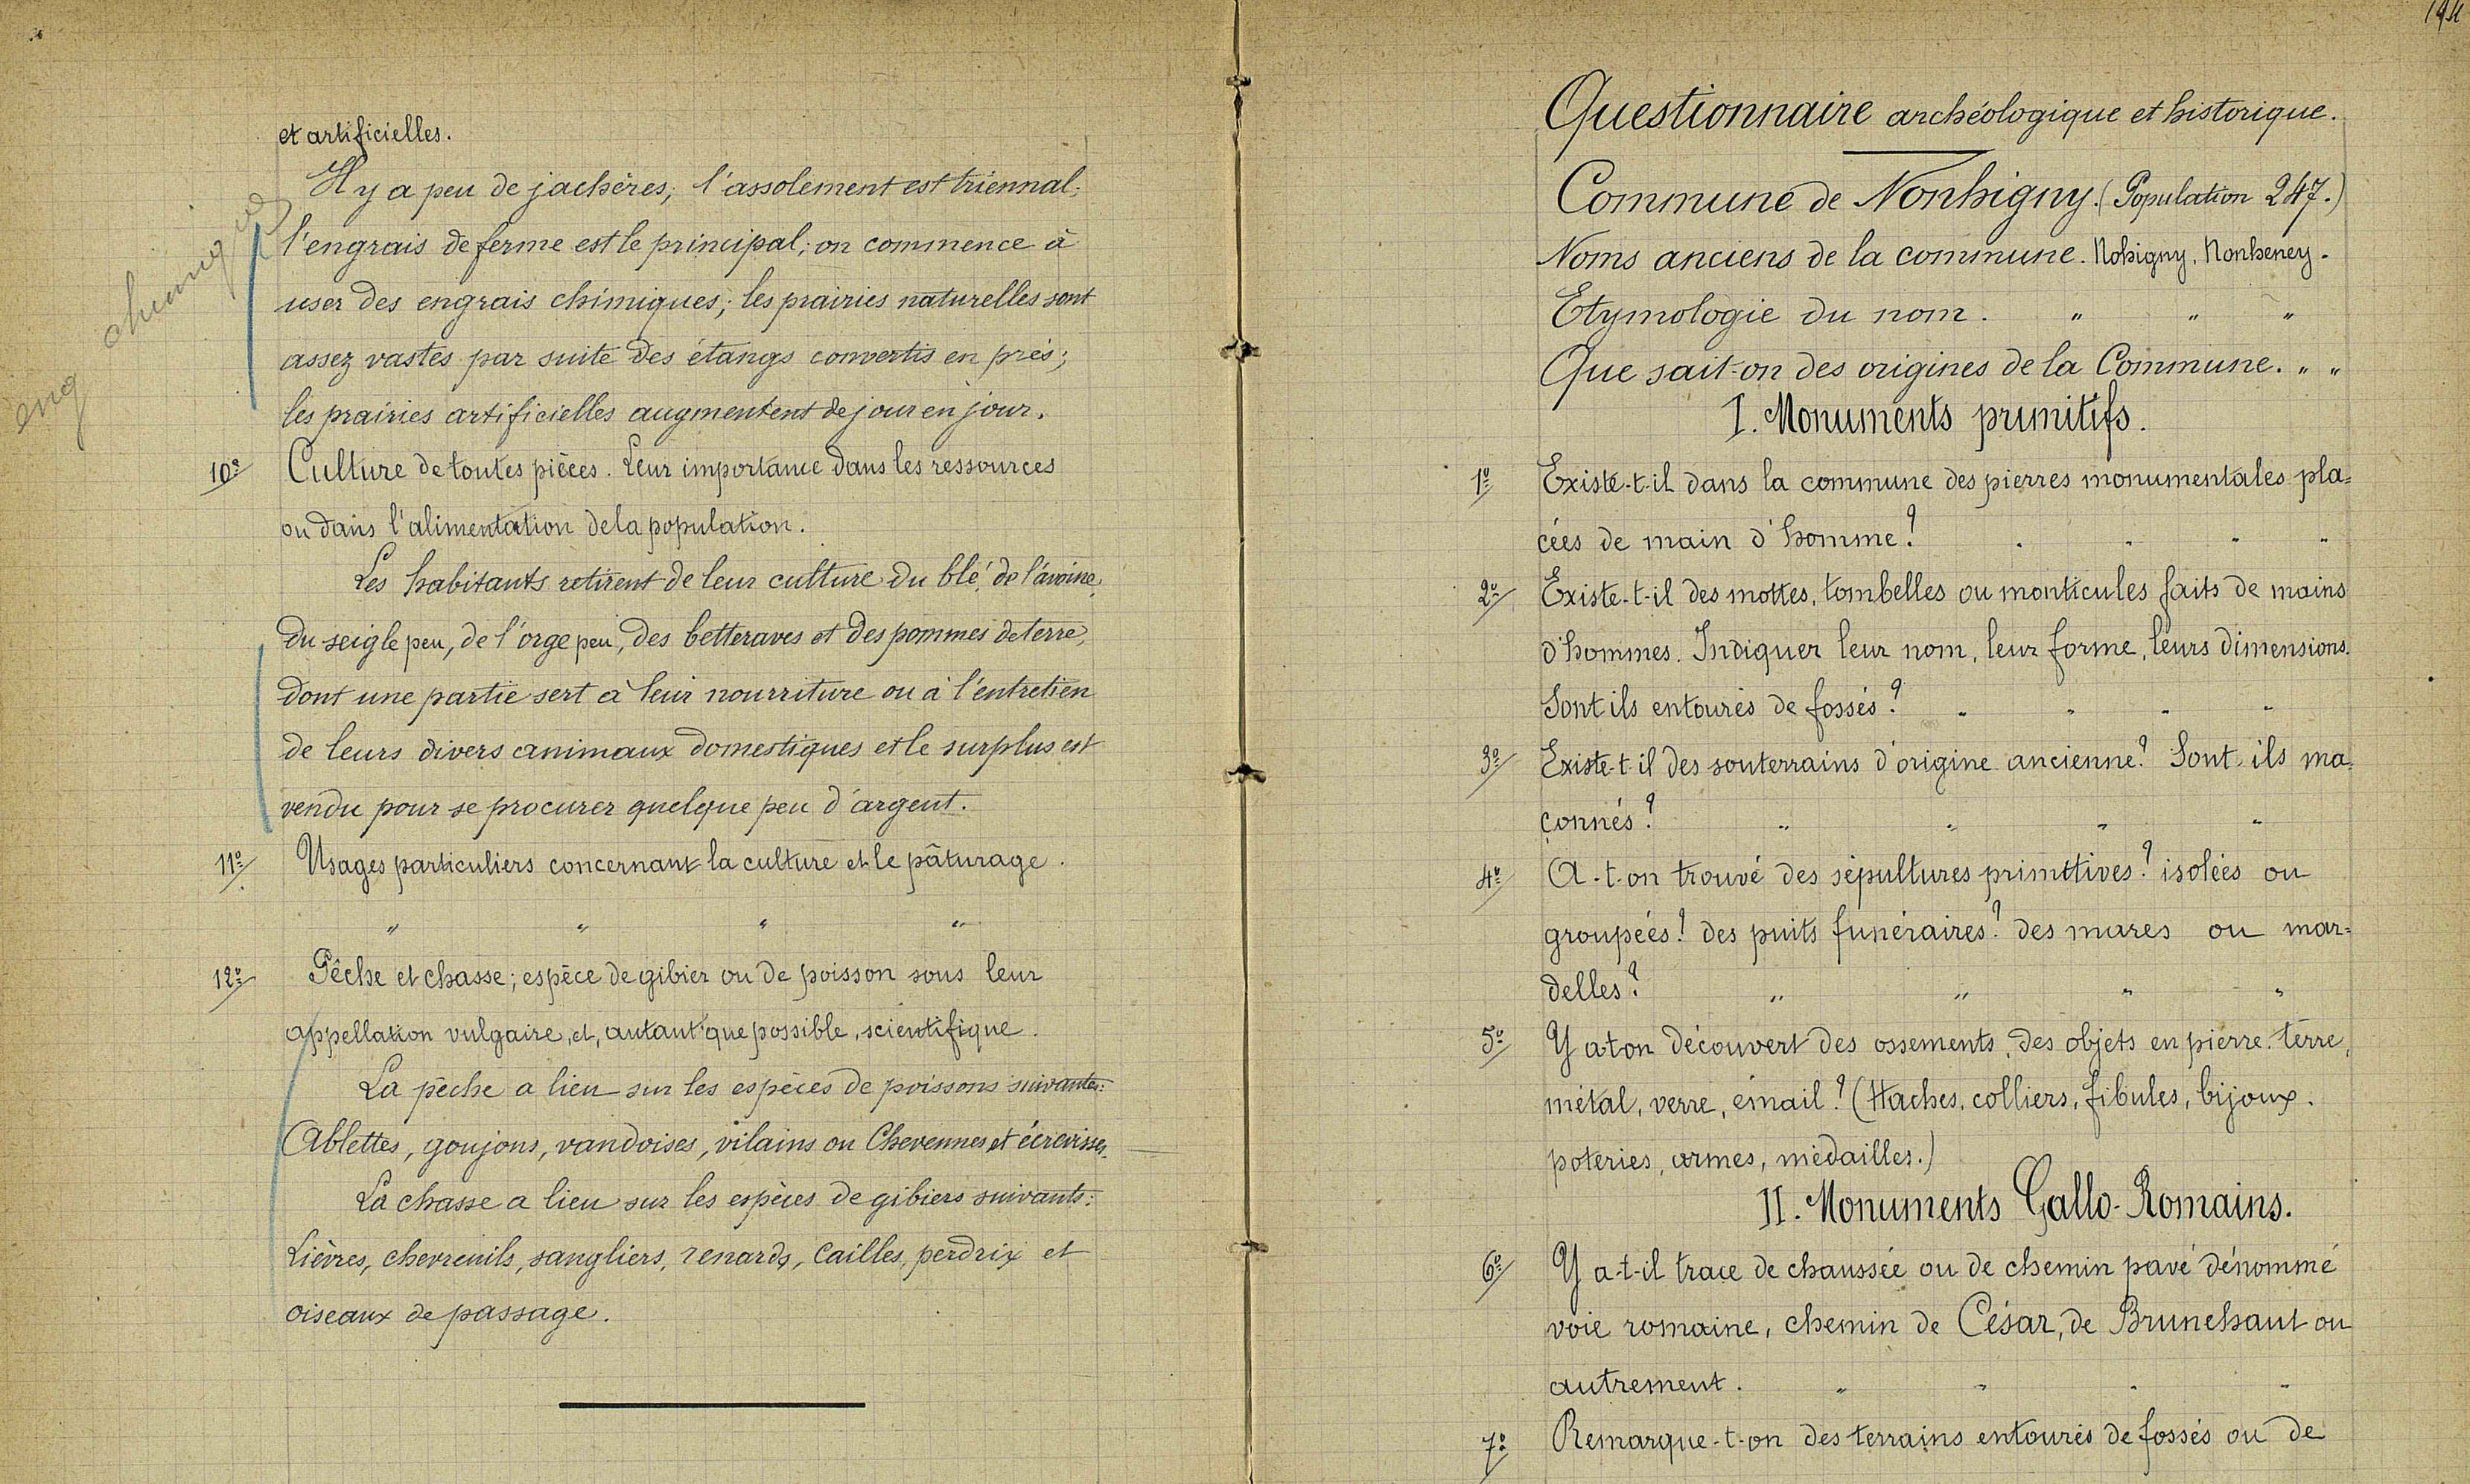 et artificielles.
Il y a peu de jachères; l'assolement est triennal;
l'engrais de ferme est le principal; on commence à
user des engrais chimiques; les prairies naturelles sont
assez vastes par suite des étangs convertis en prés;
les prairies artificielles augmentent de jour en jour.
eng chimiques
10º Culture de toutes pièces. Leur importance dans les ressources
ou dans l'alimentation de la population.
Les habitants retirent de leur culture du blé, de l'avoine,
du seigle peu, de l'orge peu, des betteraves et des pommes de terre,
dont une partie sert à leur nourriture ou à l'entretien
de leurs divers animaux domestiques et le surplus est
vendu pour se procurer quelque peu d'argent.
11º Usages particuliers concernant la culture et le pâturage.
" " " "
12º Pêche et chasse; espèce de gibier ou de poisson sous leur
appellation vulgaire, et, autant que possible, scientifique.
La pêche a lieu sur les espèces de poissons suivantes:
Ablettes, goujons, vandoises, vilains ou Chevennes et écrevisses.
La chasse a lieu sur les espèces de gibiers suivants:
Lièvres, chevreuils, sangliers, renards, cailles, perdrix et
oiseaux de passage.
Questionnaire archéologique et historique.
Commune de Nonhigny. (Population 247.)
Noms anciens de la commune. Nohigny, Nonheney.
Etymologie du nom. " " "
Que sait-on des origines de la Commune. " "
I. Monuments primitifs.
1º Existe-t-il dans la commune des pierres monumentales pla=
cées de main d'homme? " " " "
2º Existe-t-il des mottes, tombelles ou monticules faits de mains
d'hommes. Indiquer leur nom, leur forme, leurs dimensions.
Sont ils entourés de fossés? " " " "
3º Existe-t-il des souterrains d'origine ancienne? Sont-ils ma=
çonnés? " " " "
4º A-t-on trouvé des sépultures primitives? isolées ou
groupées? des puits funéraires? des mares ou mar=
delles? " " " "
5º Y a-t-on découvert des ossements, des objets en pierre, terre,
métal, verre, émail? (Haches, colliers, fibules, bijoux.
poteries, armes, médailles.)
II. Monuments Gallo-Romains.
6º Y a-t-il trace de chaussée ou de chemin pavé dénommé
voie romaine, chemin de César, de Brunehaut ou
autrement. " " " "
7º Remarque-t-on des terrains entourés de fossés ou de